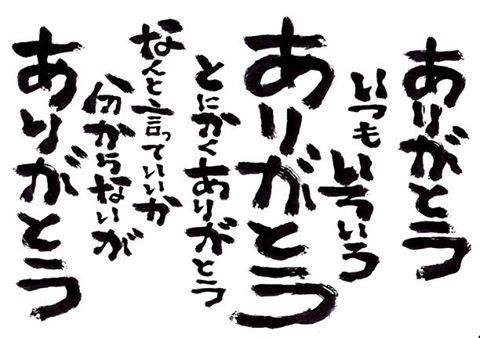 ありがとう
いつも
いろいろ
ありがとう
とにかくありがとう
なんと言っていいか
分からないが
ありがとう